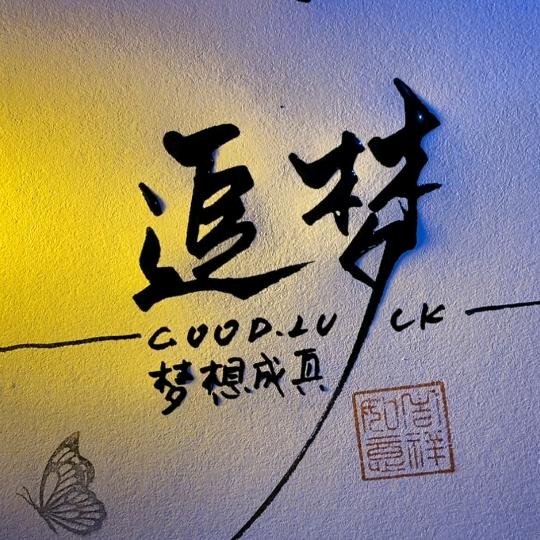 追梦
GOOD.LUCK
梦想成真
吉祥如意